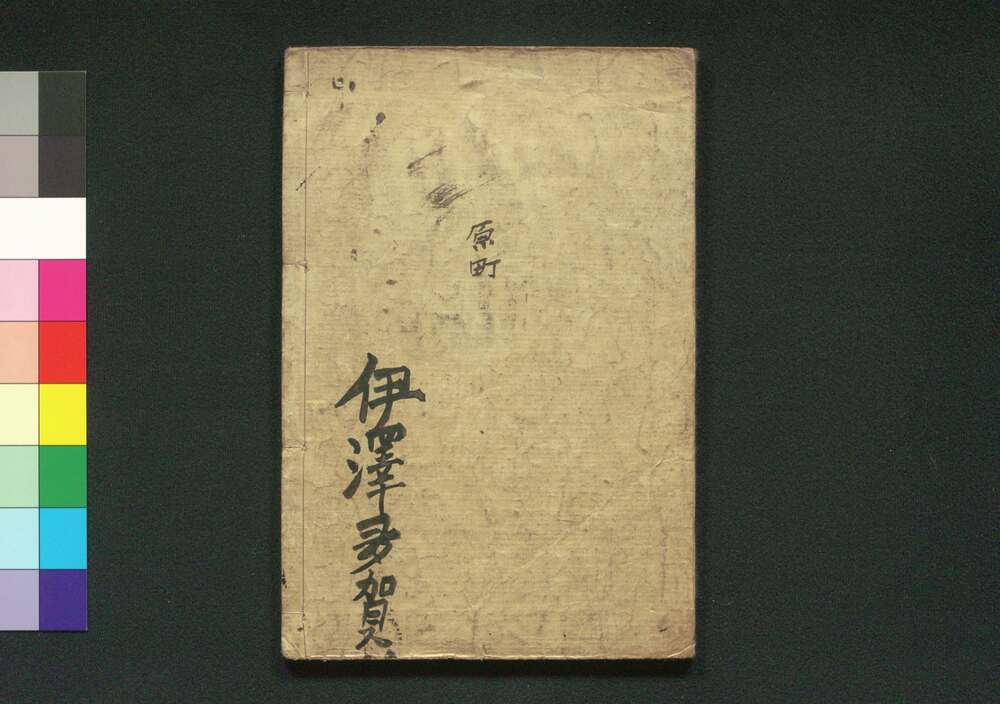 原町
伊澤多賀